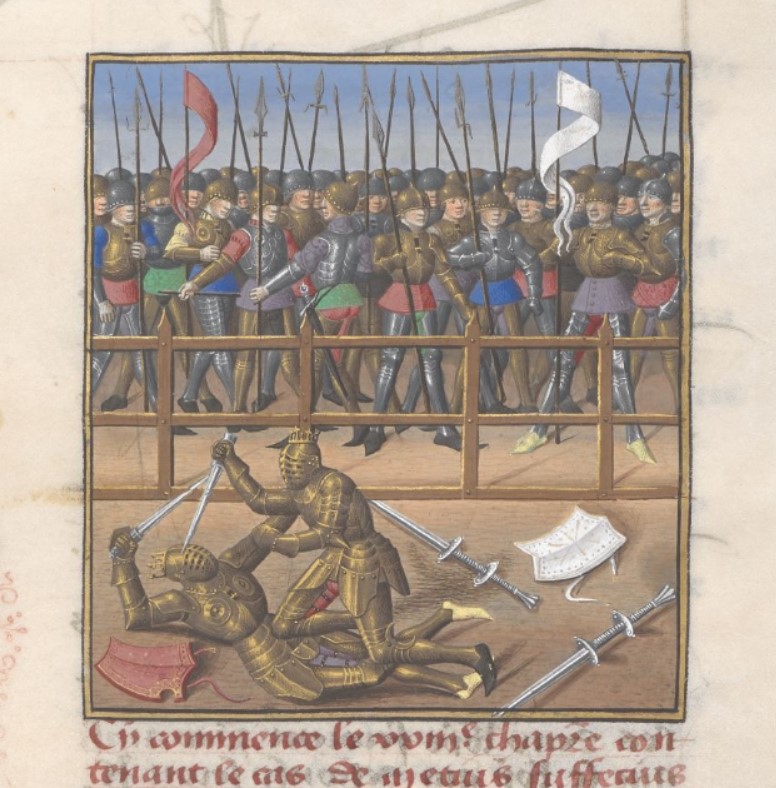 Cy commence le xviii.e chapitre con
tenant le cas de metius suffecius